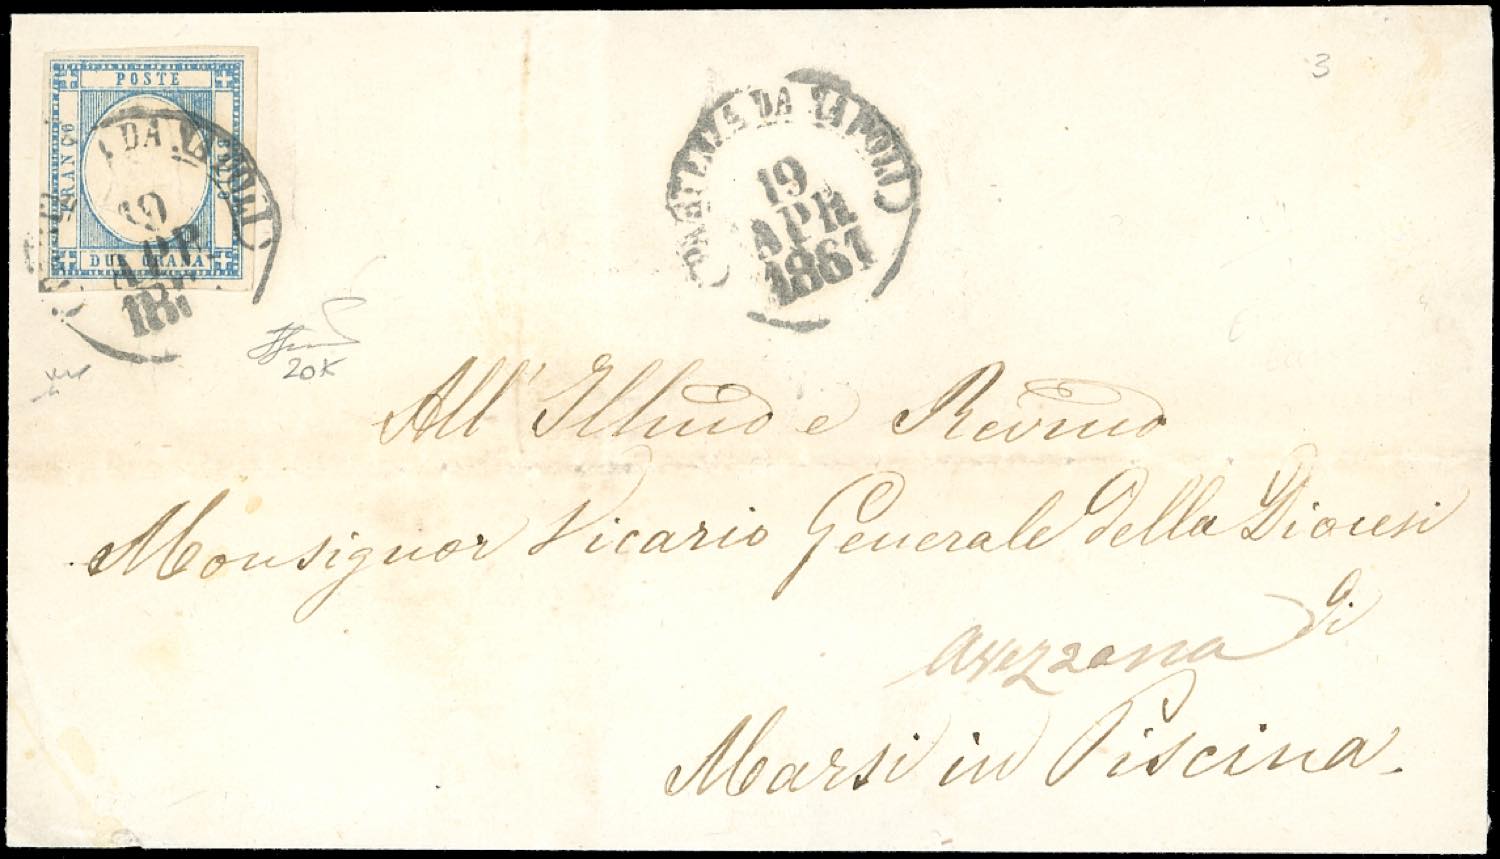 POSTE
FRANCO
DUE GRANA
DA NAPOLI)
19
APR
(PARTENZA DA NAPOLI)
19
APR
1861
3
20K
All' Illmo e Revmo
Monsignor Vicario Generale della Diocesi
di
Avezzana
Marsi in Piscina